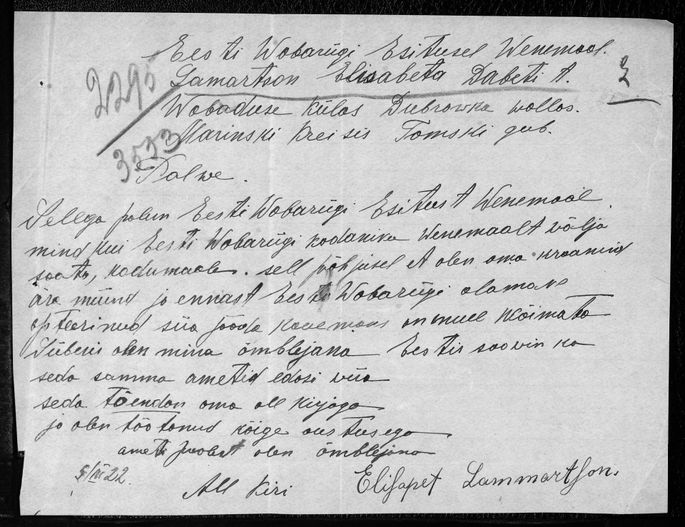 Eesti Wobariigi Esitusel Wenemaal.
2295
Lamartson Elisabeta Dabeti t.
2
Wobaduse külas Dubrowka wollos.
3553
Marinski kreisis Tomski gub.
Palwe.
Sellega palun Eesti Wobariigi Esitust Wenemaal
mind kui Eesti Wobariigi kodaniku Wenemaalt välja
saata, kodumaale. sell põhjusel et olen oma kraamid
ära müünd ja ennast Eesti Wobariigi alamaks
opteerinud siia jääda kauemaks on mull wõimata
Siberis olen mina õmblejana Eestis soowin ka
seda samma ametid edasi wiia
seda tõendan oma all kirjaga
ja olen töötanud kõige austusega
ameti poolest olen õmblejana
22.
All kiri Elisapet Lammartson.